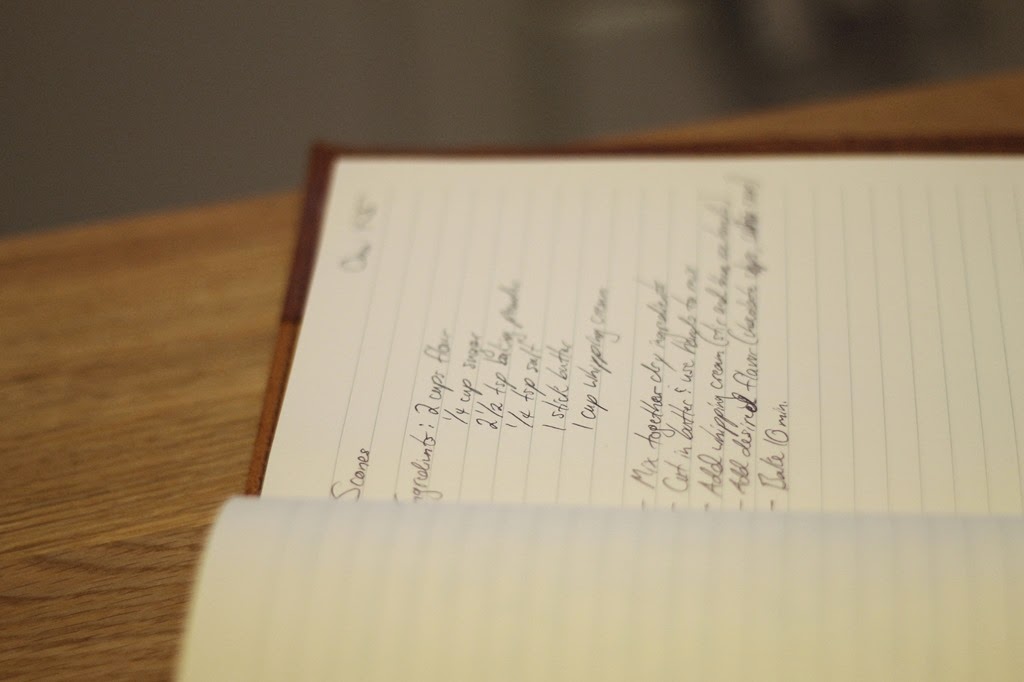 Scones
ngredients: 2 cups flour
1/4 cup sugar
2 1/2 tsp baking powder
1/4 tsp salt
1 stick butter
1 cup whipping cream
- Mix together dry ingredients
- Cut in butter & use hands to mix
- Add whipping cream
- Add desired flavor (chocolate chips,
- Bake 10 min.